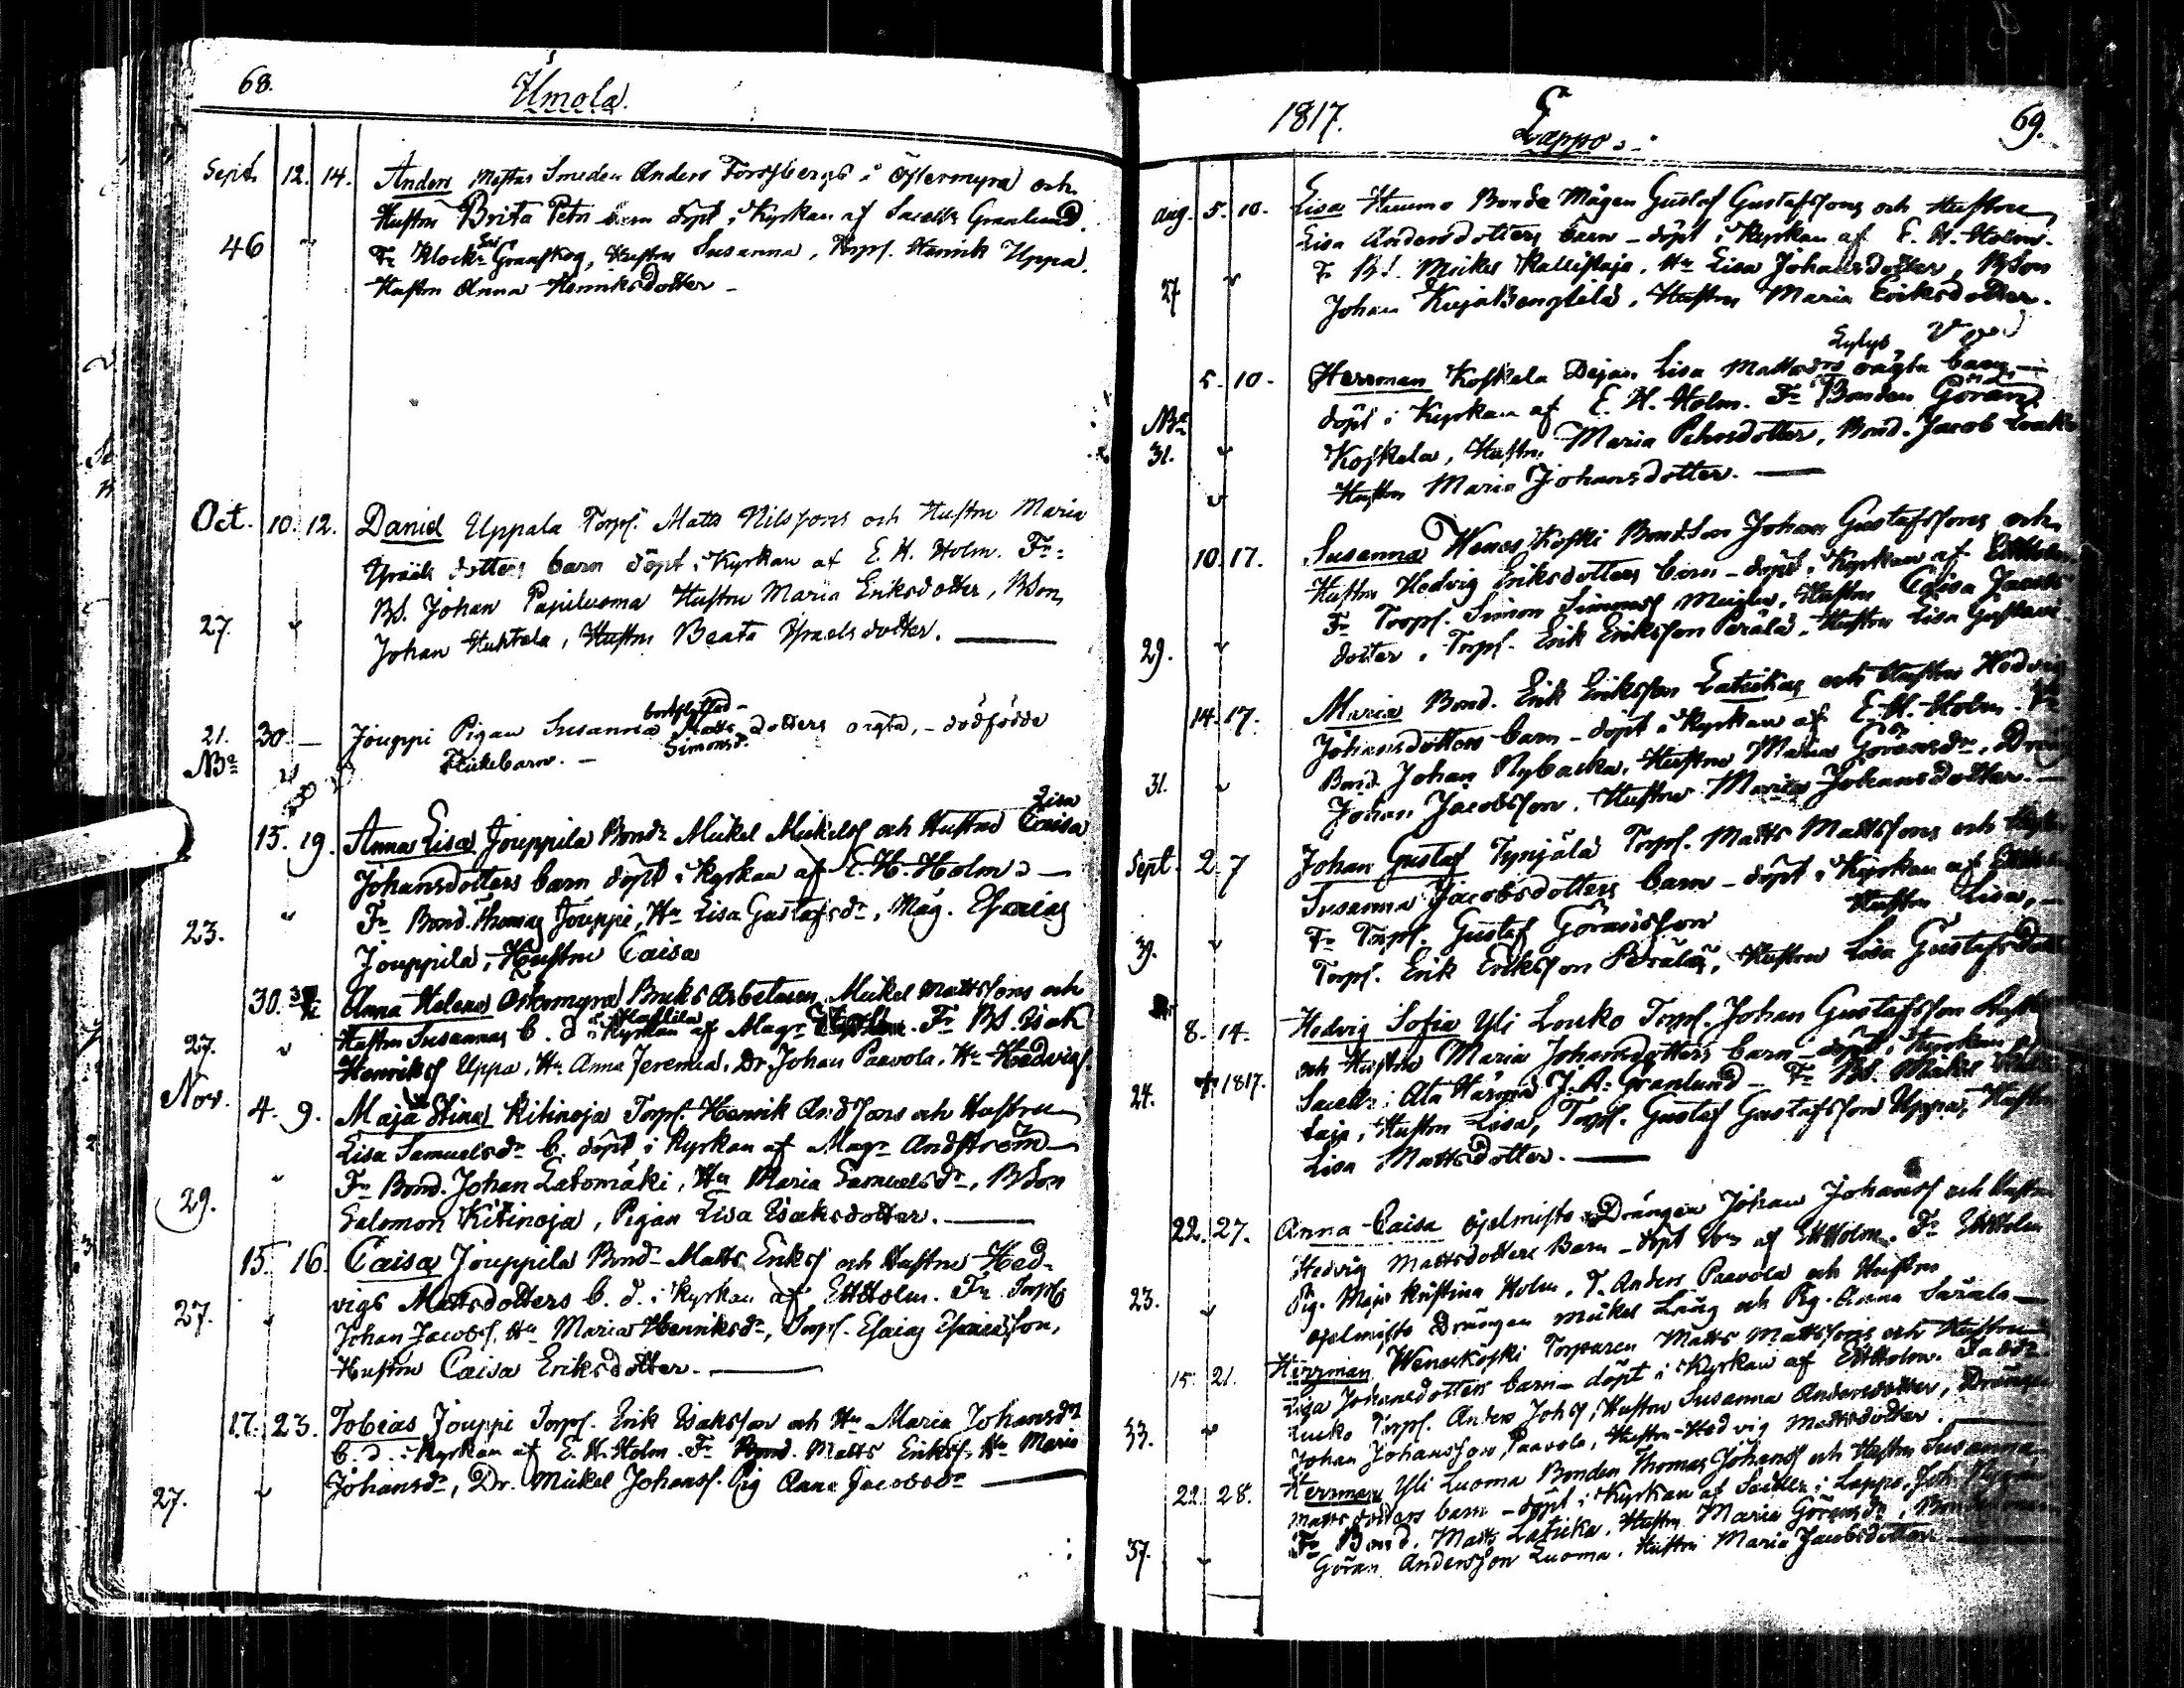 68.
Ümola.
Sept. 12. 14. Anders Mästar Smeden Anders Forssbergs i Östermyra och
Hustru Brita Petrs barn döpt i Kyrkan af Granlund.
46 Fr Klock Graafskog, Hustru Susanna, Torp. Henrik Uppa,
Hustru Anna Henriksdotter –
Oct. 10. 12. Daniel Uppala Torp. Matts Nilssons och Hustru Maria
dotters barn döpt i Kyrkan af E. H. Holm. Fr:
BS. Johan Pajuluoma Hustru Maria Eriksdotter, BSon
27. Johan Huhtala, Hustru Beata Israelsdotter. —
bortflyttad –
21. 30. – Jouppi Pigan Susanna Matts dotters oägta, – dödfödde
Simonsd.
NB flickebarn. –
Lisa
15. 19. Anna Lisa Jouppila Bond Mickel Mickels och Hustru Caisa
Johansdotters barn döpt i Kyrkan af E. H. Holm –
Fr Bond. Thomas Jouppi, Hu Lisa Gustafsdr, Måg. Esaias
23. Jouppila, Hustru Caisa
30. Anna Helena Östermyra Bruks Arbetaren Mickel Mattssons och
Hustru Susannas b. d i Kyrkan af Magr Fr BS. Isak
27. Henriks Uppa, Hu Anna Jeremia. Dr. Johan Paavola. Hu Hedvig
Nov. 4. 9. Maja Stina Kitinoja Torp. Henrik Andssons och Hustru
Lisa Samuelsdr b. döpt i Kyrkan af Magr Andström –
Fr Bond. Johan Latomäki, Hu Maria Samuelsdr, BSon
29. Salomon Kitinoja, Pigan Lisa Isaksdotter. —
15. 16. Caisa Jouppila Bond Matts Eriks och Hustru Hed-
vigs Mattsdotters b. d. i Kyrkan af EHHolm. Fr Torp
27. Johan Jacobs. Hu Maria Henriksdr, Torp. Esaias Esaiasson,
Hustru Caisa Eriksdotter. —
17. 23. Tobias Jouppi Torp. Erik Isaksson och Hu Maria Johansdr
b. d. i Kyrkan af E. H. Holm. Fr Bond. Matts Eriks. Hu Maria
27. Johansdr, Dr. Mickel Johans. Pig Anna Jacobsdr —
1817. Lappo. 69.
Aug. 5. 10. Lisa Bonde Mågen Gustaf Gustafssons och Hustru
Lisa Andersdotters barn – döpt i Kyrkan af E. H. Holm.
Fr BS. Mickel Kallistaja, Hu Lisa Johansdotter, BSon
27 Johan KujaBengtilä, Hustru Maria Eriksdotter.
5. 10. Herrman Koskela Dejan Lisa Mattsdrs oägta barn –
NB döpt i Kyrkan af E. H. Holm. Fr Bonden Göran
31. Koskela, Hustru Maria Petersdotter, Bond. Jacob
Hustru Maria Johansdotter. —
10. 17. Susanna Wenes Koski BondSon Johan Gustafssons och
Hustru Hedvig Eriksdotters barn – döpt i Kyrkan af EHHolm
Fr Torp. Simon Simons Hustru Caisa Jacobs
29. dotter, Torp. Erik Eriksson Perälä, Hustru Lisa
14. 17. Maria Bond. Erik Eriksson Latikas och Hustru Hedvig
Johansdotters barn – döpt i Kyrkan af E. H. Holm. Fr
Bond. Johan Nybacka, Hustru Maria Göransdr, Dräng
31. Johan Jacobsson, Hustru Maria Johansdotter. –
Sept. 2. 7 Johan Gustaf Tynjälä Torp. Matts Mattssons och
Susanna Jacobsdotters barn – döpt i Kyrkan af
Fr Torp. Gustaf Göransson Hustru Lisa, –
39. Torp. Erik Eriksson Perälä, Hustru Lisa Gustafsdotter
8. 14. Hedvig Sofia Yli Louko Torp. Johan Gustafsson
och Hustru Maria Johansdotters barn – döpt i Kyrkan
24. + 1817. i Ala Härmä J. A: Granlund – Fr BS. Mickel
taja, Hustru Lisa, Torp. Gustaf Gustafsson Uppa, Hustru
Lisa Mattsdotter. —
22. 27. Anna Caisa Ojelmisto Drängen Johan Johans och Hustru
Hedvig Mattsdotters Barn – döpt af EHHolm. Fr
23. Pig. Maja Kristina Holm, T. Anders Paavola och Hustru
Ojelmisto Drängen Mickel Laurg och Pig. Anna Särala –
15. 21. Herrman Weneskoski Torparen Matts Mattssons och Hustru
Lisa Johansdotters barn – döpt i Kyrkan af EHHolm.
Torp. Anders Johs, Hustru Susanna Andersdotter, Drängen
33. Johan Johansson Paavola, Hustru Hedvig Mattsdotter. —
22. 28. Herrman Yli Luoma Bonden Thomas Johans och Hustru Susanna
Mattsdotters barn – döpt i Kyrkan af i Lappo, Joh.
Fr Bond. Matts Latikka, Hustru Maria Göransdr,
37. Göran Andersson Luoma. Hustru Maria Jacobsdotter —